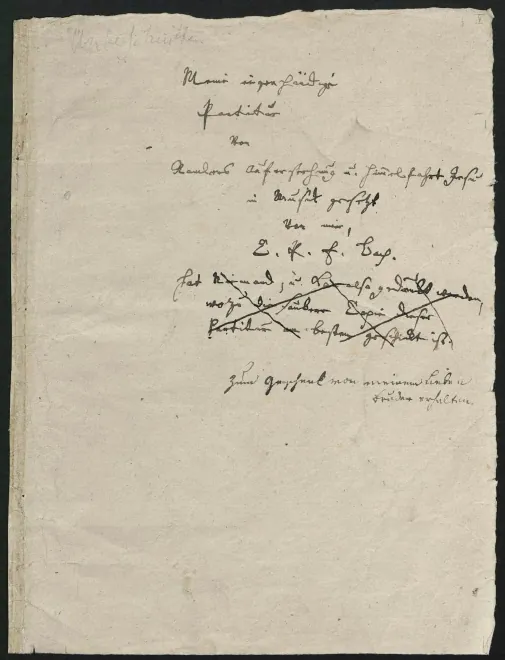 Meine eigenhändige
Partitur
Von
Ramlers Auferstehung u. Himmelfahrt Jesu
in Musik gesetzt
Von mir,
C. P. E. Bach.
hat Niemand, u. kan also gedruckt werden,
wozu die saubere Copie dieser
Partitur am besten geschickt ist.
zum Geschenk von meinem lieben
Bruder erhalten.